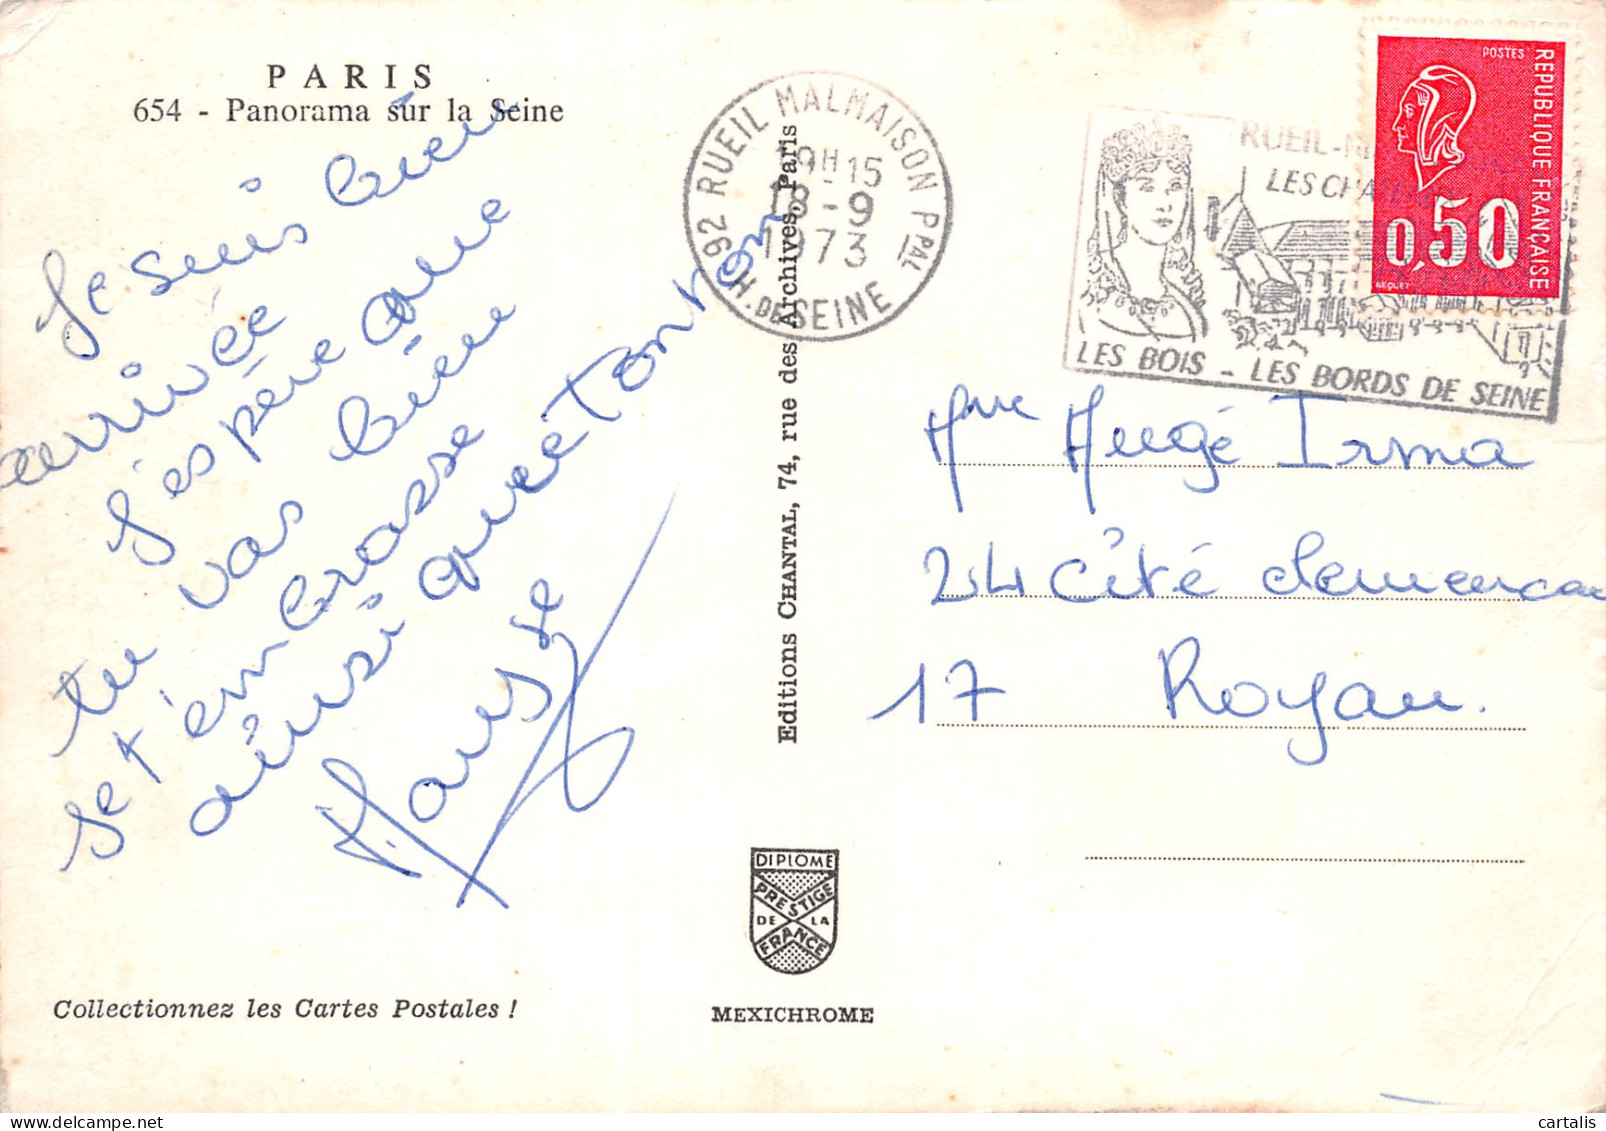 PARIS
654 - Panorama sur la Seine
Je suis bien
arrivée
J'espère que
tu vas bien
je t'embrasse
ainsi que Tonton
Editions CHANTAL, 74, rue des Archives, Paris
92 RUEIL MALMAISON PPAL
19H15
18-9
1973
HTS DE SEINE
RUEIL-M
LES CHA
LES BOIS - LES BORDS DE SEINE
POSTES
REPUBLIQUE FRANÇAISE
0,50
BEQUET
Mme Hugé Irma
24 Cité Clemenceau
17 Royan.
DIPLOME
PRESTIGE
DE LA
FRANCE
Collectionnez les Cartes Postales !
MEXICHROME
cartalis